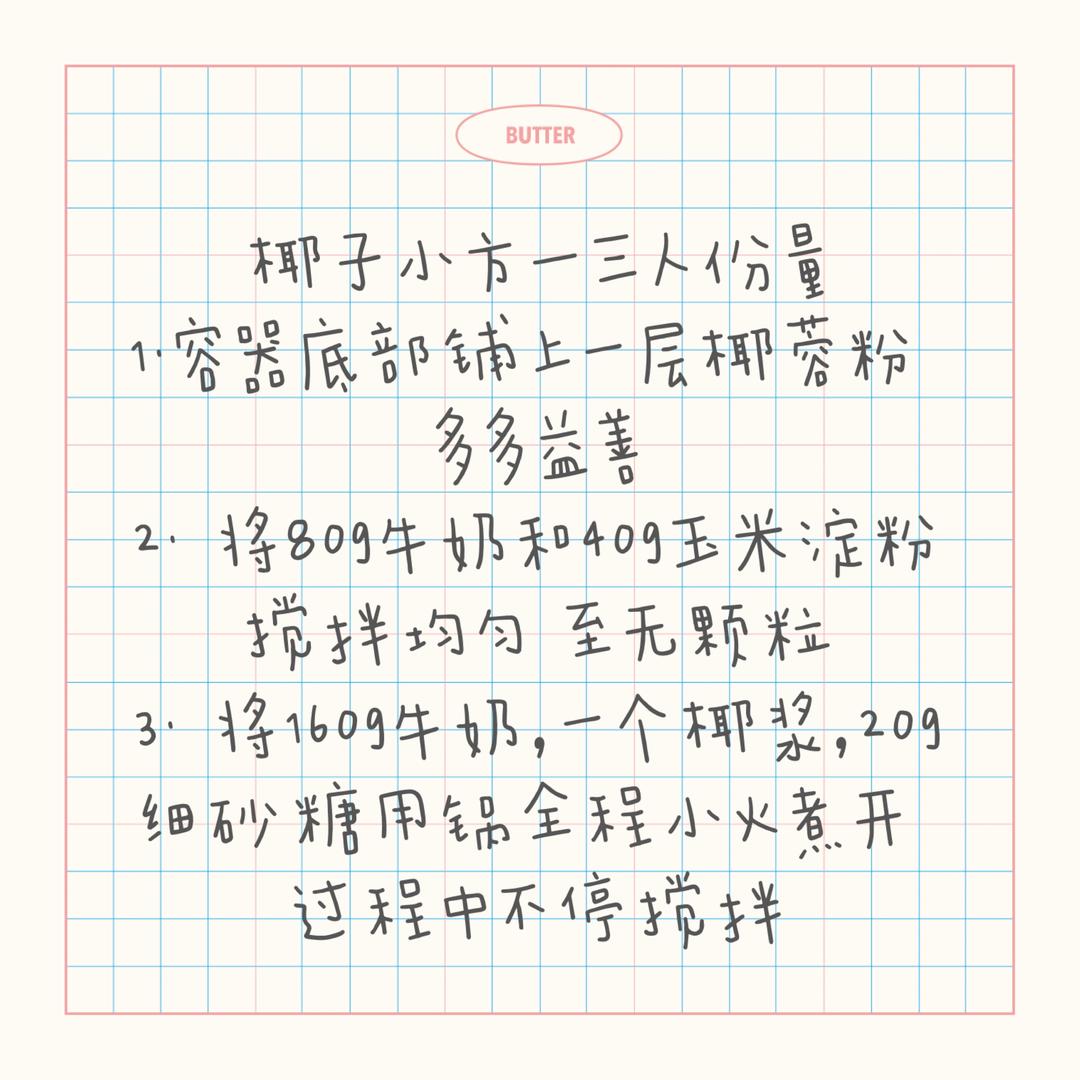 BUTTER
椰子小方一三人份量
1.容器底部铺上一层椰蓉粉
多多益善
2. 将80g牛奶和40g玉米淀粉
搅拌均匀 至无颗粒
3. 将160g牛奶,一个椰浆,20g
细砂糖用锅全程小火煮开
过程中不停搅拌